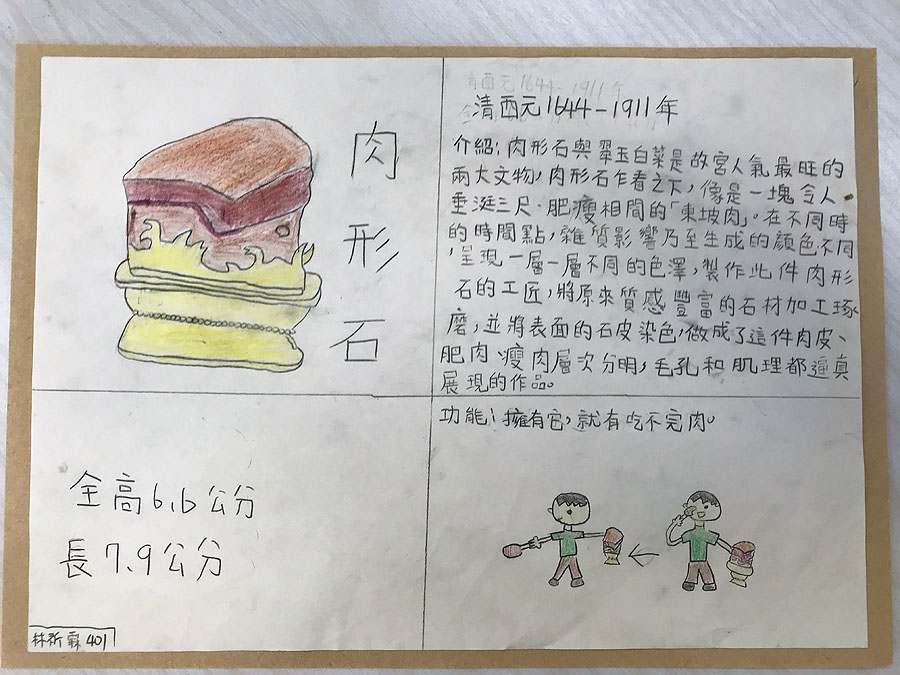 肉
形
石
清西元1644-1911年
介紹:肉形石與翠玉白菜是故宮人氣最旺的
兩大文物,肉形石乍看之下,像是一塊令人
垂涎三尺、肥瘦相間的「東坡肉」。在不同時
的時間點,雜質影響乃至生成的顏色不同
,呈現一層一層不同的色澤,製作此件肉形
石的工匠,將原來質感豐富的石材加工琢
磨,並將表面的石皮染色,做成了這件肉皮、
肥肉、瘦肉層次分明,毛孔和肌理都逼真
展現的作品。
全高6.6公分
長7.9公分
功能:擁有它,就有吃不完肉。
林祈霖 401